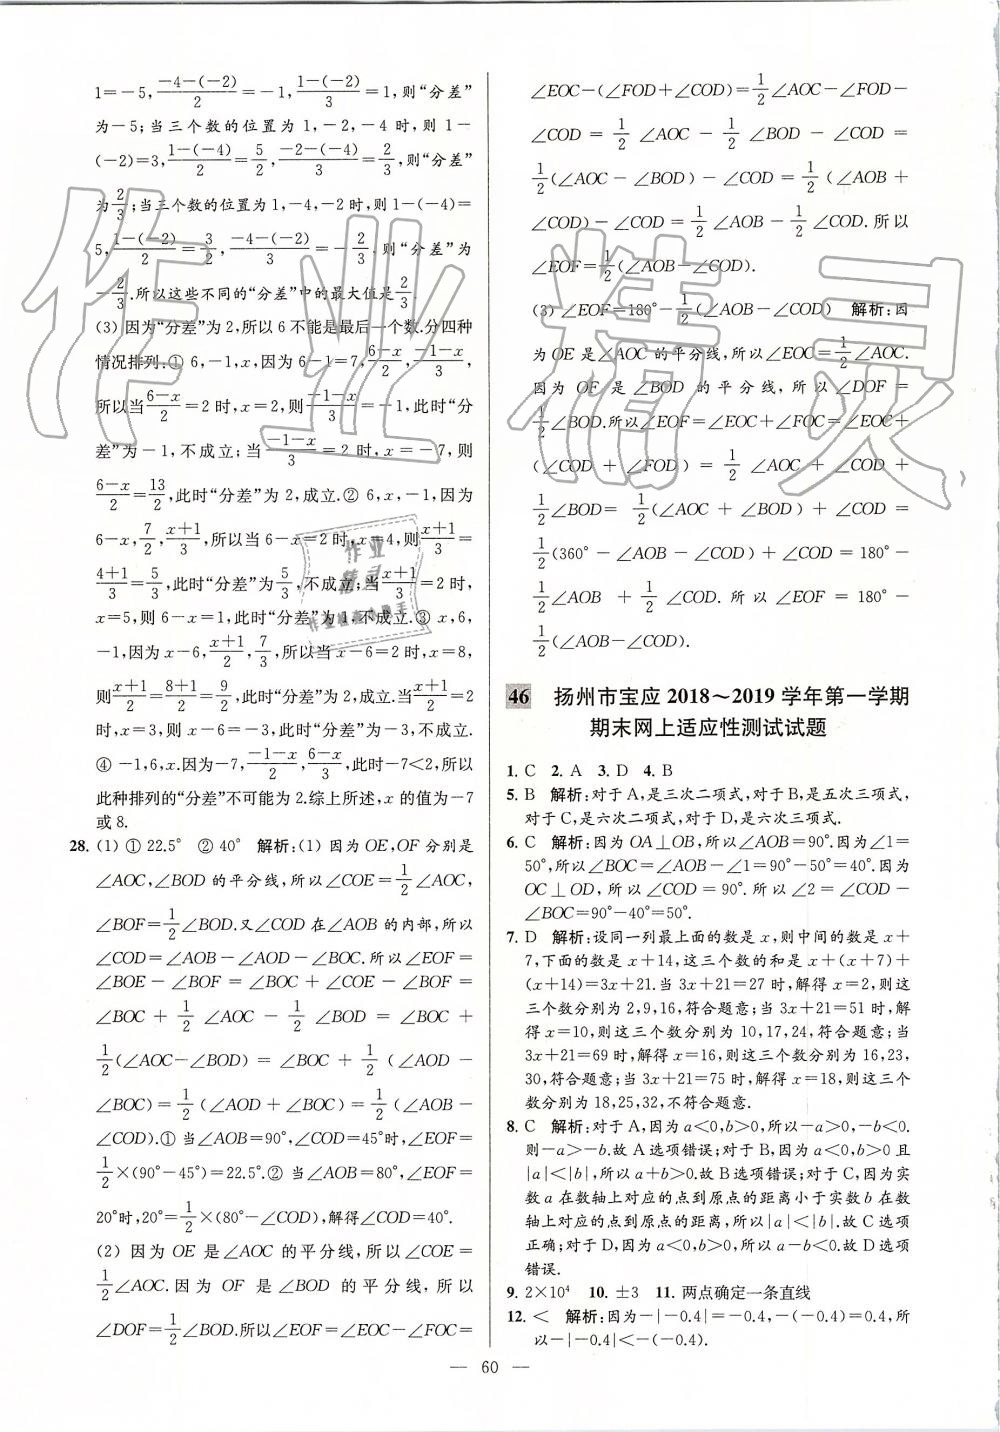 1=-5,\frac{-4-(-2)}{2}=-1,\frac{1-(-2)}{3}=1,则“分差”
为-5;当三个数的位置为1,-2,-4时,则1-
(-2)=3,\frac{1-(-4)}{2}=\frac{5}{2},\frac{-2-(-4)}{3}=\frac{2}{3},则“分差”
为\frac{2}{3};当三个数的位置为1,-4,-2时,则1-(-4)=
5,\frac{1-(-2)}{2}=\frac{3}{2},\frac{-4-(-2)}{3}=-\frac{2}{3},则“分差”为
-\frac{2}{3}.所以这些不同的“分差”中的最大值是\frac{2}{3}.
(3) 因为“分差”为2,所以6不能是最后一个数.分四种
情况排列.① 6,-1,x,因为6-(-1)=7,\frac{6-x}{2},\frac{-1-x}{3},
所以当\frac{6-x}{2}=2时,x=2,则\frac{-1-x}{3}=-1,此时“分
差”为-1,不成立;当\frac{-1-x}{3}=2时,x=-7,则
\frac{6-x}{2}=\frac{13}{2},此时“分差”为2,成立.② 6,x,-1,因为
6-x,\frac{7}{2},\frac{x+1}{3},所以当6-x=2时,x=4,则\frac{x+1}{3}=
\frac{4+1}{3}=\frac{5}{3},此时“分差”为\frac{5}{3},不成立;当\frac{x+1}{3}=2时,
x=5,则6-x=1,此时“分差”为1,不成立.③ x,6,
-1,因为x-6,\frac{x+1}{2},\frac{7}{3},所以当x-6=2时,x=8,
则\frac{x+1}{2}=\frac{8+1}{2}=\frac{9}{2},此时“分差”为2,成立;当\frac{x+1}{2}=
2时,x=3,则x-6=-3,此时“分差”为-3,不成立.
④ -1,6,x.因为-7,\frac{-1-x}{2},\frac{6-x}{3},此时-7<2,所以
此种排列的“分差”不可能为2.综上所述,x的值为-7
或8.
28. (1) ① 22.5° ② 40° 解析:(1) 因为OE,OF分别是
∠AOC,∠BOD的平分线,所以∠COE=\frac{1}{2}∠AOC,
∠BOF=\frac{1}{2}∠BOD.又∠COD在∠AOB的内部,所以
∠COD=∠AOB-∠AOD-∠BOC.所以∠EOF=
∠BOE-∠BOF=∠BOC+∠COE-∠BOF=
∠BOC+\frac{1}{2}∠AOC-\frac{1}{2}∠BOD=∠BOC+
\frac{1}{2}(∠AOC-∠BOD)=∠BOC+\frac{1}{2}(∠AOD-
∠BOC)=\frac{1}{2}(∠AOD+∠BOC)=\frac{1}{2}(∠AOB-
∠COD).① 当∠AOB=90°,∠COD=45°时,∠EOF=
\frac{1}{2}×(90°-45°)=22.5°.② 当∠AOB=80°,∠EOF=
20°时,20°=\frac{1}{2}×(80°-∠COD),解得∠COD=40°.
(2) 因为OE是∠AOC的平分线,所以∠COE=
\frac{1}{2}∠AOC.因为OF是∠BOD的平分线,所以
∠DOF=\frac{1}{2}∠BOD.所以∠EOF=∠EOC-∠FOC=
∠EOC-(∠FOD+∠COD)=\frac{1}{2}∠AOC-∠FOD-
∠COD=\frac{1}{2}∠AOC-\frac{1}{2}∠BOD-∠COD=
\frac{1}{2}(∠AOC-∠BOD)-∠COD=\frac{1}{2}(∠AOB+
∠COD)-∠COD=\frac{1}{2}∠AOB-\frac{1}{2}∠COD.所以
∠EOF=\frac{1}{2}(∠AOB-∠COD).
(3) ∠EOF=180°-\frac{1}{2}(∠AOB-∠COD) 解析:因
为OE是∠AOC的平分线,所以∠EOC=\frac{1}{2}∠AOC.
因为OF是∠BOD的平分线,所以∠DOF=
\frac{1}{2}∠BOD.所以∠EOF=∠EOC+∠FOC=∠EOC+
(∠COD+∠FOD)=\frac{1}{2}∠AOC+∠COD+
\frac{1}{2}∠BOD=\frac{1}{2}(∠AOC+∠BOD)+∠COD=
\frac{1}{2}(360°-∠AOB-∠COD)+∠COD=180°-
\frac{1}{2}∠AOB+\frac{1}{2}∠COD.所以∠EOF=180°-
\frac{1}{2}(∠AOB-∠COD).
46 扬州市宝应2018~2019学年第一学期
期末网上适应性测试试题
1. C 2. A 3. D 4. B
5. B 解析:对于A,是三次二项式,对于B,是五次三项式,
对于C,是六次二项式,对于D,是六次三项式.
6. C 解析:因为OA⊥OB,所以∠AOB=90°.因为∠1=
50°,所以∠BOC=∠AOB-∠1=90°-50°=40°.因为
OC⊥OD,所以∠COD=90°.所以∠2=∠COD-
∠BOC=90°-40°=50°.
7. D 解析:设同一列最上面的数是x,则中间的数是x+
7,下面的数是x+14,这三个数的和是x+(x+7)+
(x+14)=3x+21.当3x+21=27时,解得x=2,则这
三个数分别为2,9,16,符合题意;当3x+21=51时,解
得x=10,则这三个数分别为10,17,24,符合题意;当
3x+21=69时,解得x=16,则这三个数分别为16,23,
30,符合题意;当3x+21=75时,解得x=18,则这三个
数分别为18,25,32,不符合题意.
8. C 解析:对于A,因为a<0,b>0,所以-a>0,-b<0.
则-a>-b.故A选项错误;对于B,因为a<0,b>0且
|a|<|b|,所以a+b>0.故B选项错误;对于C,因为实
数a在数轴上对应的点到原点的距离小于实数b在数
轴上对应的点到原点的距离,所以|a|<|b|.故C选项
正确;对于D,因为a<0,b>0,所以a-b<0.故D选项
错误.
9. 2×10⁴ 10. ±3 11. 两点确定一条直线
12. < 解析:因为-|-0.4|=-0.4,-(-0.4)=0.4,所
以-|-0.4|<-(-0.4).
— 60 —
作业精灵
作业
精灵